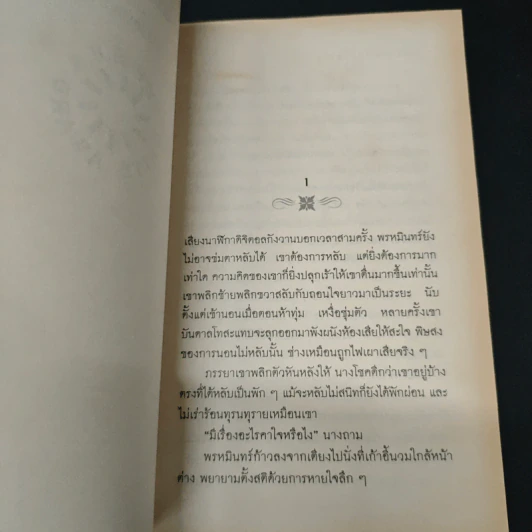 1
เสียงนาฬิกาดิจิตอลกังวานบอกเวลาสามครั้ง พรหมินทร์ยัง
ไม่อาจข่มตาหลับได้ เขาต้องการหลับ แต่ยิ่งต้องการมาก
เท่าใด ความคิดของเขาก็ยิ่งปลุกเร้าให้เขาตื่นมากขึ้นเท่านั้น
เขาพลิกซ้ายพลิกขวาสลับกับถอนใจยาวมาเป็นระยะ นับ
ตั้งแต่เข้านอนเมื่อตอนห้าทุ่ม เหงื่อชุ่มตัว หลายครั้งเขา
บันดาลโทสะแทบจะลุกออกมาพังผนังห้องเสียให้สะใจ พิษสง
ของการนอนไม่หลับนั้น ช่างเหมือนถูกไฟเผาเสียจริง ๆ
ภรรยาเขาพลิกตัวหันหลังให้ นางโชคดีกว่าเขาอยู่บ้าง
ตรงที่ได้หลับเป็นพัก ๆ แม้จะหลับไม่สนิทก็ยังได้พักผ่อน และ
ไม่เร่าร้อนทุรนทุรายเหมือนเขา
"มีเรื่องอะไรคาใจหรือไง" นางถาม
พรหมินทร์ก้าวลงจากเตียงไปนั่งที่เก้าอี้นวมใกล้หน้า
ต่าง พยายามตั้งสติด้วยการหายใจลึก ๆ